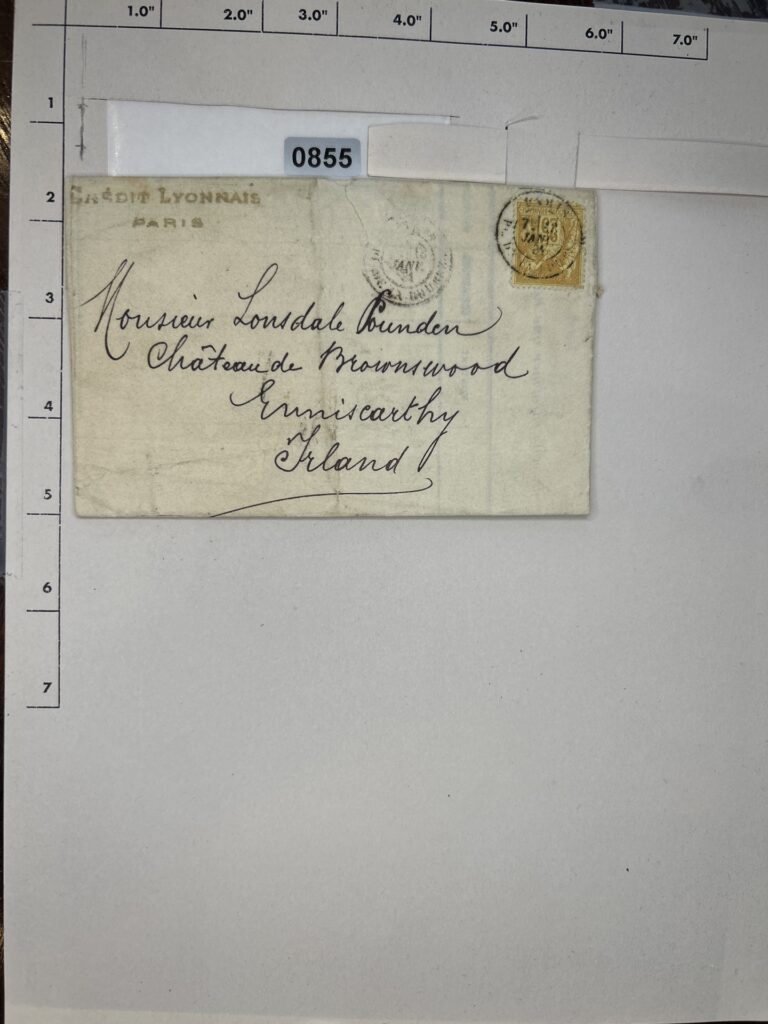 1.0" 2.0" 3.0" 4.0" 5.0" 6.0" 7.0"
1
2
3
4
5
6
7
0855
CRÉDIT LYONNAIS
PARIS
JANV
PARIS
JANV
Monsieur Lonsdale Pounden
Château de Brownswood
Enniscarthy
Irland